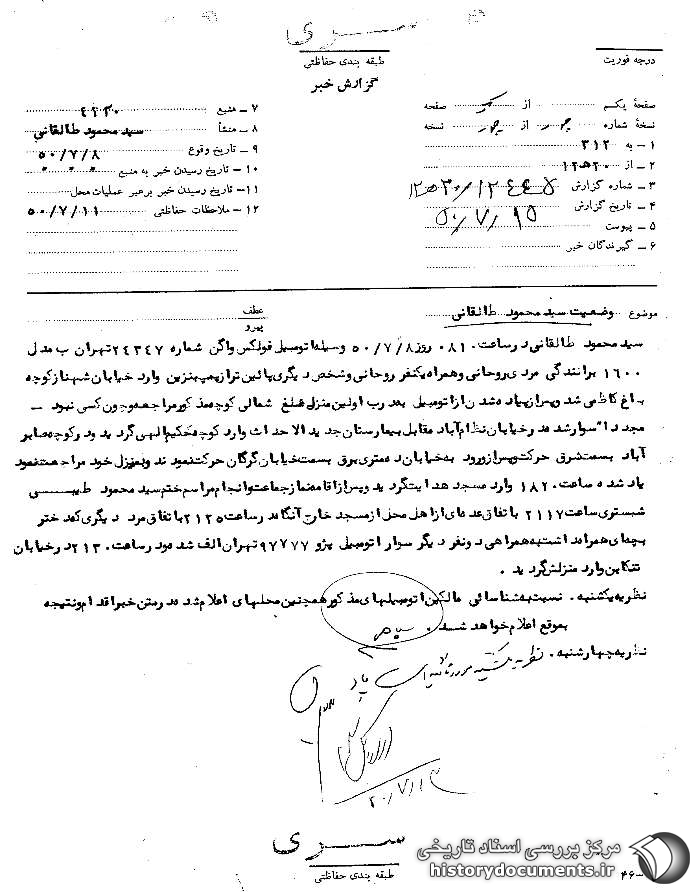 سـری
طبقه بندی حفاظتی
درجه فوریت
گزارش خبر
صفحهٔ یکم از صفحه
نسخهٔ شماره از نسخه
۱ ـ به ۳۱۲
۲ ـ از ۲۰ ه‍ ۱۲
۳ ـ شماره گزارش
۴ ـ تاریخ گزارش
۵ ـ پیوست
۶ ـ گیرندگان خبر
۷ ـ منبع
۸ ـ منشأ سید محمود طالقانی
۹ ـ تاریخ وقوع ۵۰/۷/۸
۱۰ ـ تاریخ رسیدن خبر به منبع
۱۱ ـ تاریخ رسیدن خبر برهبر عملیات محل
۱۲ ـ ملاحظات حفاظتی ۵۰/۷/۱۱
موضوع وضعیت سید محمود طالقانی
عطف
پیرو
سید محمود طالقانی در ساعت ۰۸۱۰ روز ۵۰/۷/۸ وسیله اتومبیل فولکس واگن شماره ۲۴۳۴۷ تهران ب مدل
۱۶۰۰ برانندگی مردی روحانی و همراه یکنفر روحانی و شخص دیگری پائین تر از پمپ بنزین وارد خیابان شهناز کوچه
باغ کاظمی شد و پس از پیاده شدن از اتومبیل بدرب اولین منزل ضلع شمالی کوچه مذکور مراجعه و چون کسی نبود ـ
مجدداً سوار شده در خیابان نظام آباد مقابل بیمارستان جدید الاحداث وارد کوچه حکیم الهی گردید و در کوچه صابر
آباد بسمت شرق حرکت و پس از ورود به خیابان ده متری برق بسمت خیابان گرگان حرکت نمودند و بمنزل خود مراجعت نمود
یاد شده ساعت ۱۸۲۰ وارد مسجد هدایت گردید و پس از اقامه نماز جماعت و انجام مراسم ختم سید محمود طیبـــی
شبستری ساعت ۲۱۱۷ با تفاق عده ای از اهل محل از مسجد خارج آنگاه در ساعت ۲۱۲۵ با تفاق مرد دیگری که دختر
بچه ای همراه داشت به همراهی دو نفر دیگر سوار اتومبیل پژو ۹۷۷۷۷ تهران الف شده و در ساعت ۲۱۳۰ در خیابان
تنکابن وارد منزلش گردید .
نظریه یکشنبه . نسبت به شناسائی مالکین اتومبیلهای مذکور همچنین محلهای اعلام شده در متن خبر اقدام و نتیجه
بموقع اعلام خواهد شد .
نظریه چهارشنبه . نظریه یکشنبه مورد تائید است
سـری
طبقه بندی حفاظتی
۴۶-
مرکز بررسی اسناد تاریخی
historydocuments.ir